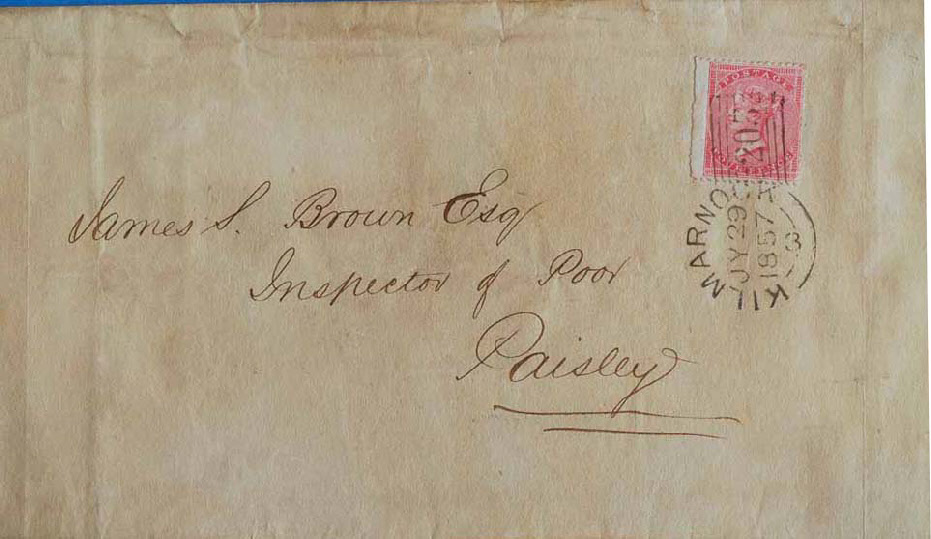 POSTAGE
KILMARNOCK
JY 29
1857
James S. Brown Esq
Inspector of Poor
Paisley